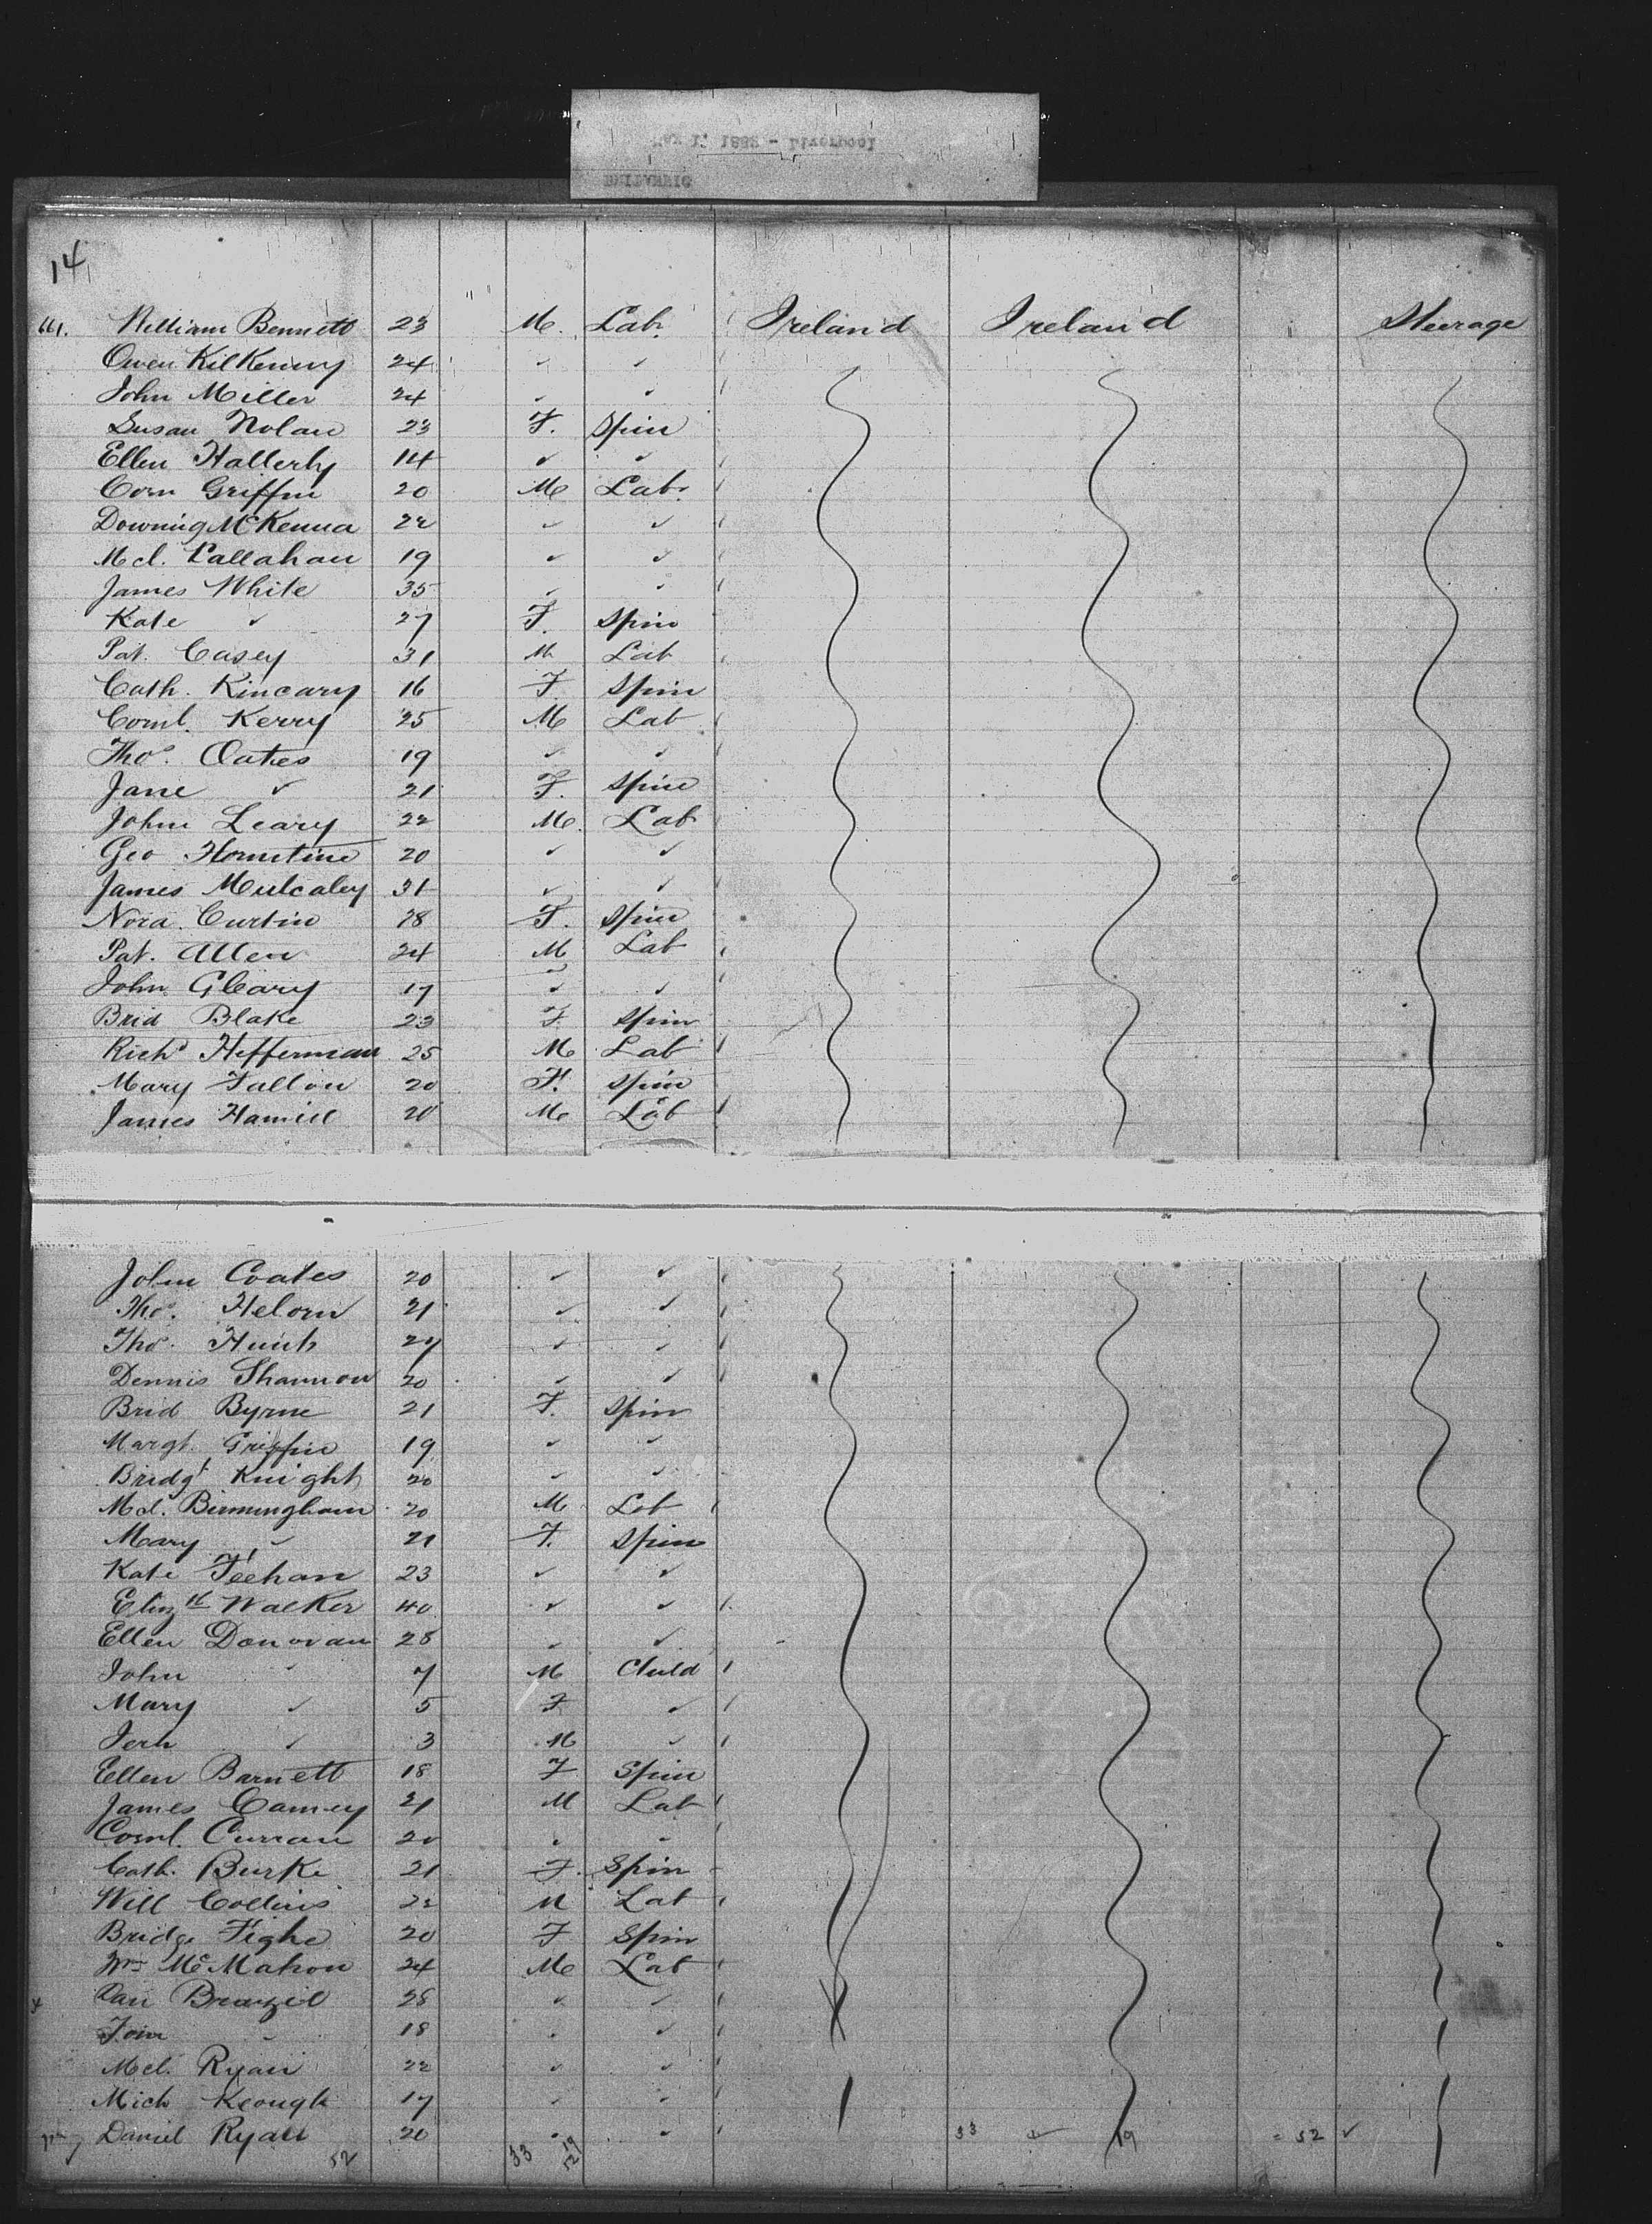 May 1, 1882 - Liverpool
BRITANNIC
14
661. William Bennett 23 M. Lab. Ireland Ireland Steerage
Owen Kilkenny 24 ✓ ✓
John Miller 24 ✓ ✓
Susan Nolan 23 F. Spin
Ellen Hallerhy 14 ✓ ✓
Corn Griffin 20 M Lab.
Downing McKenna 22 ✓ ✓
Mcl. Callahan 19 ✓ ✓
James White 35 ✓ ✓
Kate ✓ 27 F. Spin
Pat. Casey 31 M Lab
Cath. Kincary 16 F. Spin
Cornl. Kerry 25 M Lab
Thos. Oates 19 ✓ ✓
Jane ✓ 21 F. Spin
John Leary 22 M. Lab
Geo Horustine 20 ✓ ✓
James Mulcaley 31 ✓ ✓
Nora Curtin 18 F. Spin
Pat. Allen 24 M Lab
John Gleary 17 ✓ ✓
Brid Blake 23 F. Spin
Richd Hefferman 25 M Lab
Mary Fallon 20 F. Spin
James Hamill 20 M Lab
John Coates 20 ✓ ✓
Thos. Helorn 21 ✓ ✓
Thos. Hunt 27 ✓ ✓
Dennis Shannon 20 ✓ ✓
Brid Byrne 21 F. Spin
Margt. Griffin 19 ✓ ✓
Bridgt Knight 20 ✓ ✓
Mcl. Birmingham 20 M Lab
Mary ✓ 21 F. Spin
Kate Feehan 23 ✓ ✓
Elizth Walker 40 ✓ ✓
Ellen Donovan 28 ✓ ✓
John ✓ 7 M Child
Mary ✓ 5 F ✓
Jerh ✓ 3 M ✓
Ellen Barnett 18 F Spin
James Camey 21 M Lab
Cornl. Curran 20 ✓ ✓
Cath. Burke 21 F. Spin
Will Collins 22 M Lab
Bridge Tighe 20 F Spin
Wm McMahon 24 M Lab
Dan Breazil 28 ✓ ✓
Tom ✓ 18 ✓ ✓
Mcl. Ryan 22 ✓ ✓
Mich Keough 17 ✓ ✓
Daniel Ryall 20 ✓ ✓ 33 19 = 52 ✓
52 33 19 52